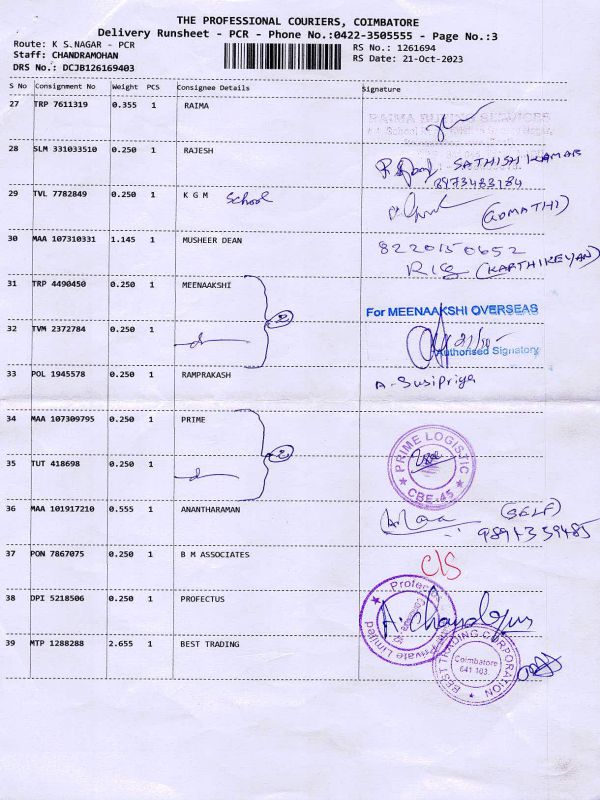 THE PROFESSIONAL COURIERS, COIMBATORE
Delivery Runsheet - PCR - Phone No.:0422-3505555 - Page No.:3
Route: K S.NAGAR - PCR
RS No.: 1261694
Staff: CHANDRAMOHAN
RS Date: 21-Oct-2023
DRS No.: DCJB126169403
S No Consignment No Weight PCS Consignee Details Signature
27 TRP 7611319 0.355 1 RAIMA
28 SLM 331033510 0.250 1 RAJESH SATHISH KUMAR
8973483184
29 TVL 7782849 0.250 1 K G M School (GOMATHI)
30 MAA 107310331 1.145 1 MUSHEER DEAN 8220150652
(KARTHIKEYAN)
31 TRP 4490450 0.250 1 MEENAAKSHI
For MEENAAKSHI OVERSEAS
32 TVM 2372784 0.250 1
Authorised Signatory
33 POL 1945578 0.250 1 RAMPRAKASH A. Susipriya
34 MAA 107309795 0.250 1 PRIME
PRIME LOGISTIC
CBE-45
35 TUT 418698 0.250 1
36 MAA 101917210 0.555 1 ANANTHARAMAN (SELF)
9894359485
37 PON 7867075 0.250 1 B M ASSOCIATES C/S
38 DPI 5218506 0.250 1 PROFECTUS
Private Limited
39 MTP 1288288 2.655 1 BEST TRADING
BEST TRADING CORPORATION
Coimbatore
641 103.